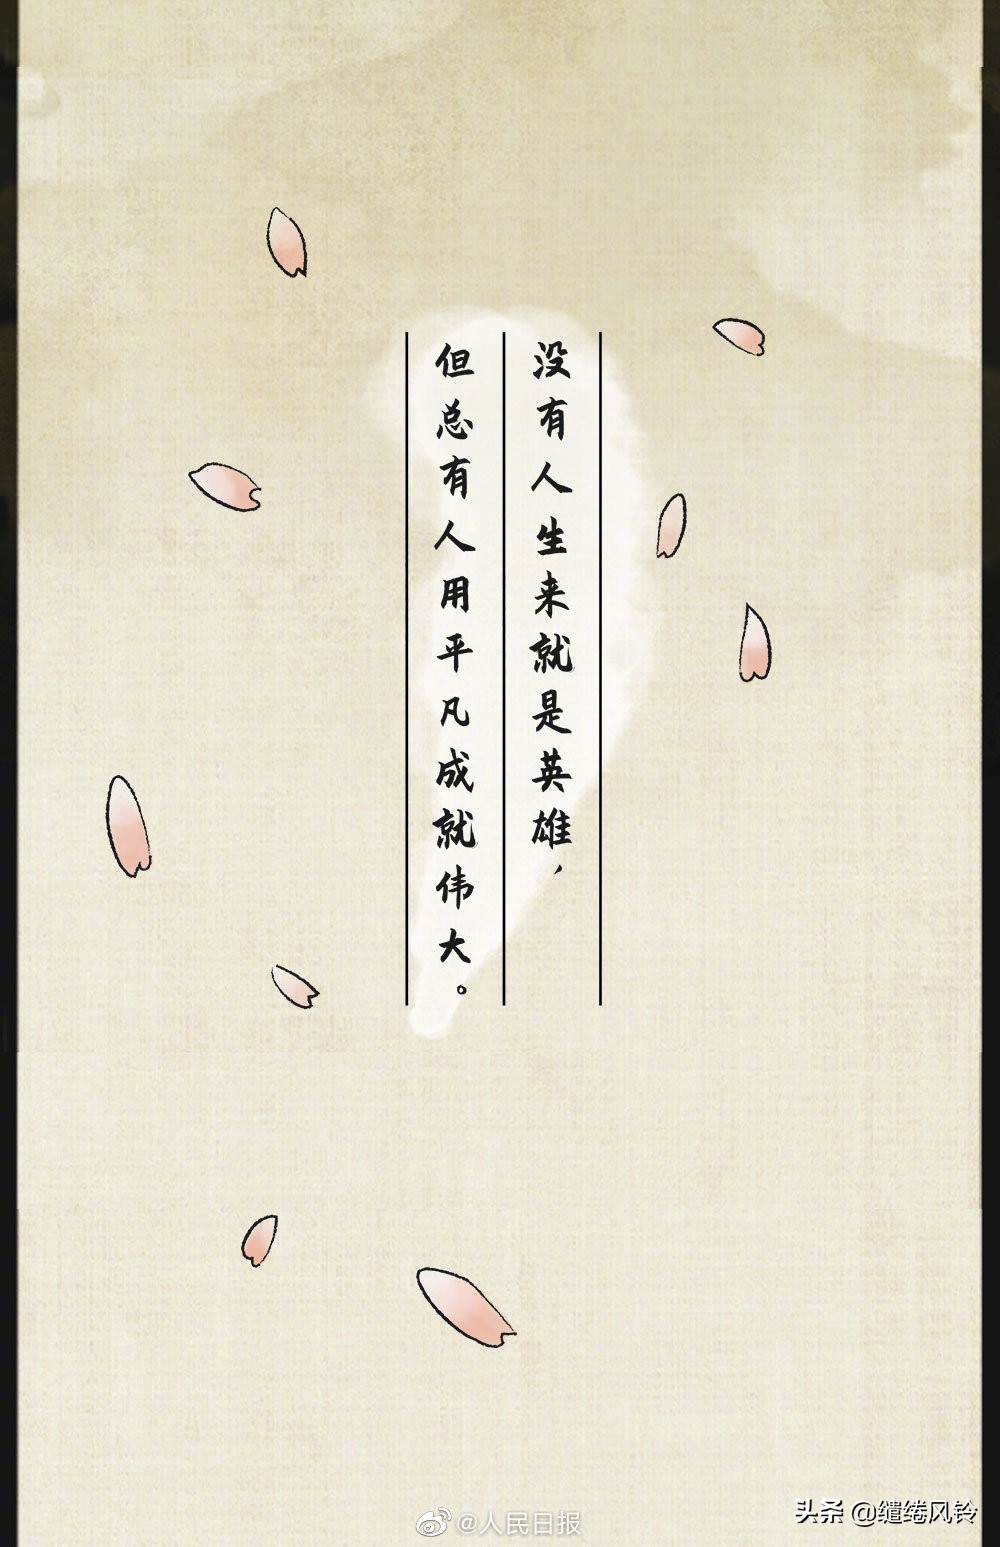 没有人生来就是英雄，
但总有人用平凡成就伟大。
@人民日报
头条 @缱绻风铃